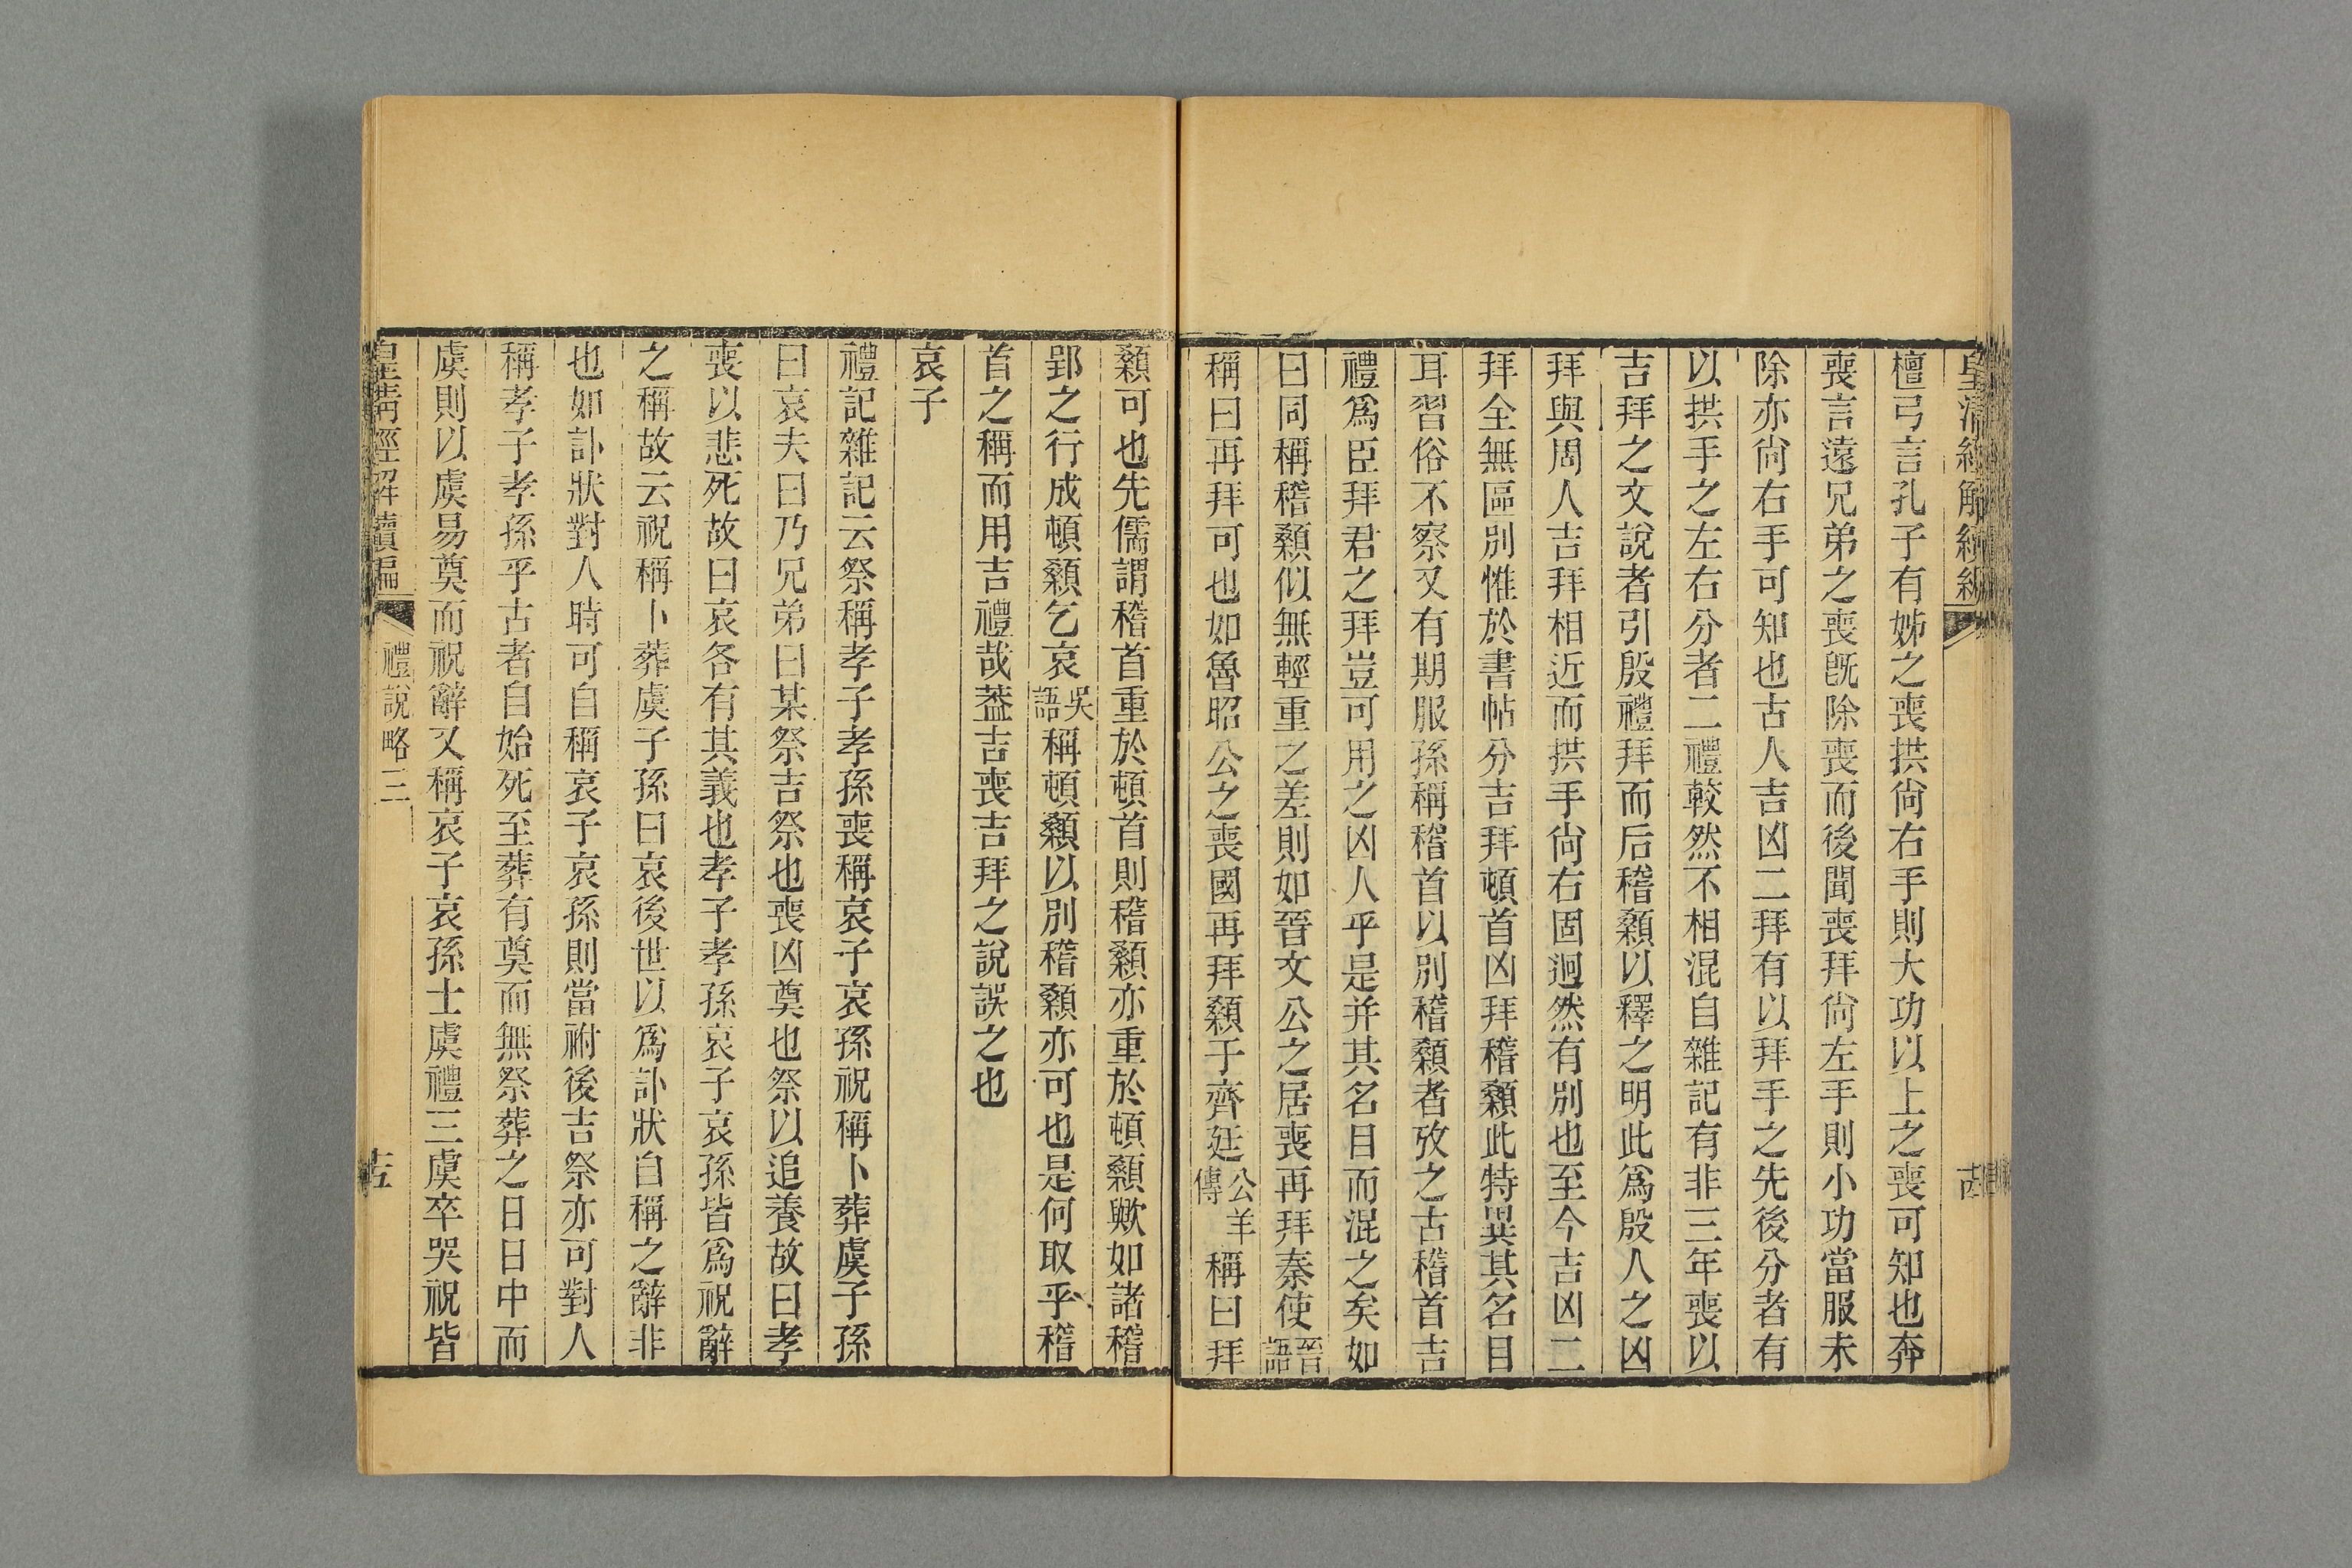 皇清經解續編
檀弓言孔子有姊之喪拱尙右手則大功以上之喪可知也奔
喪言遠兄弟之喪旣除喪而後聞喪拜尙左手則小功當服未
除亦尙右手可知也古人吉凶二拜有以拜手之先後分者有
以拱手之左右分者二禮較然不相混自雜記有非三年喪以
吉拜之文說者引殷禮拜而后稽顙以釋之明此爲殷人之凶
拜與周人吉拜相近而拱手尙右固迥然有別也至今吉凶二
拜全無區別惟於書帖分吉拜頓首凶拜稽顙此特異其名目
耳習俗不察又有期服孫稱稽首以別稽顙者攷之古稽首吉
禮爲臣拜君之拜豈可用之凶人乎是并其名目而混之矣如
曰同稱稽顙似無輕重之差則如晉文公之居喪再拜秦使晉語
稱曰再拜可也如魯昭公之喪國再拜顙于齊廷公羊傳稱曰拜
顙可也先儒謂稽首重於頓首則稽顙亦重於頓顙歟如諸稽
郢之行成頓顙乞哀吳語稱頓顙以別稽顙亦可也是何取乎稽
首之稱而用吉禮哉葢吉喪吉拜之說誤之也
哀子
禮記雜記云祭稱孝子孝孫喪稱哀子哀孫祝稱卜葬虞子孫
曰哀夫曰乃兄弟曰某祭吉祭也喪凶奠也祭以追養故曰孝
喪以悲死故曰哀各有其義也孝子孝孫哀子哀孫皆爲祝辭
之稱故云祝稱卜葬虞子孫曰哀後世以爲訃狀自稱之辭非
也如訃狀對人時可自稱哀子哀孫則當祔後吉祭亦可對人
稱孝子孝孫乎古者自始死至葬有奠而無祭葬之日日中而
虞則以虞易奠而祝辭又稱哀子哀孫士虞禮三虞卒哭祝皆
皇清經解續編 禮說略三 十五